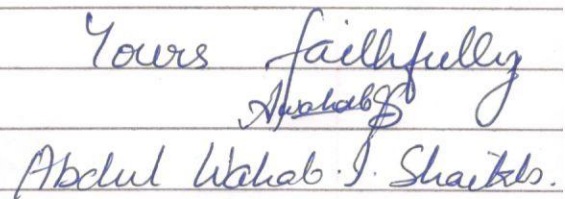 Yours faithfully
Abdul Wahab. I. Shaikh.